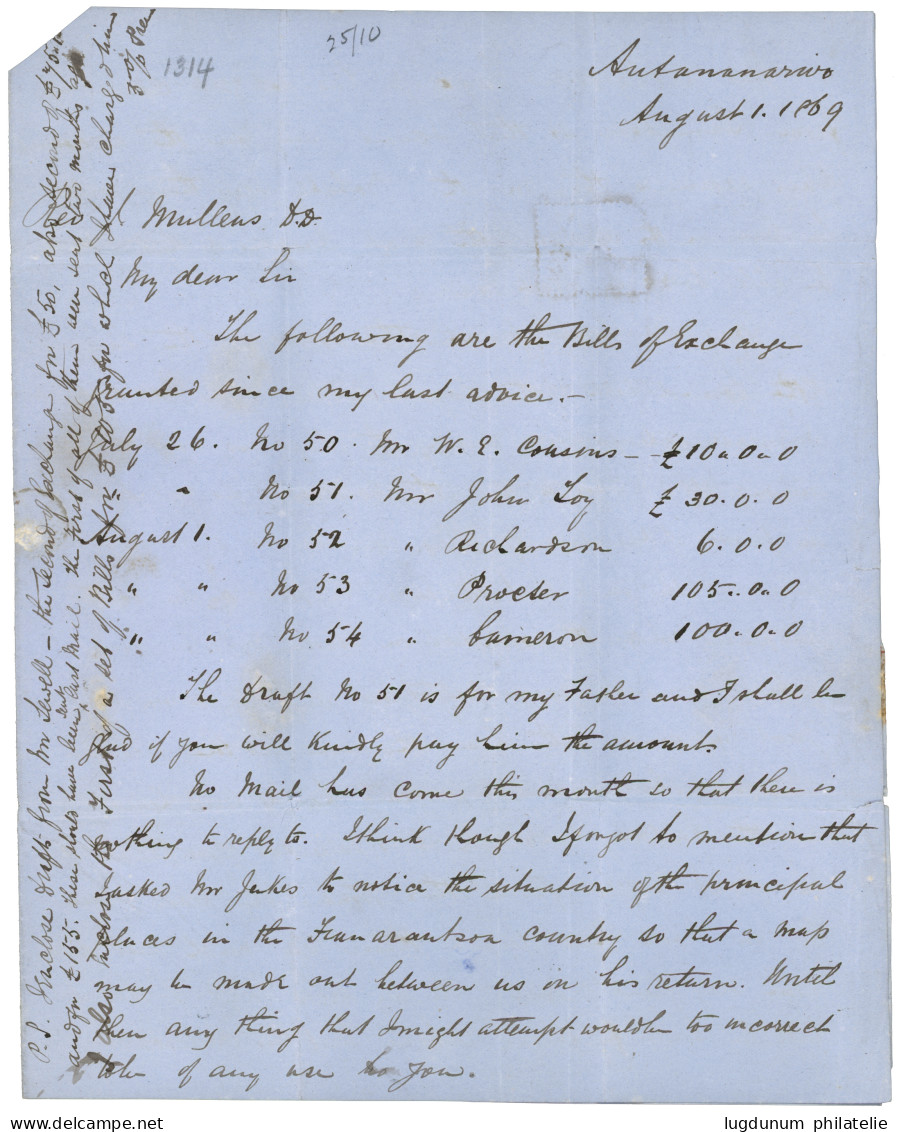 1314
25/10
Antananarivo
August 1. 1869
Mullens D.D.
My dear Sir
The following are the Bills of Exchange
granted since my last advice.—
July 26. No 50. Mr W. E. Cousins — £10.0.0
" No 51. Mr John Toy £30.0.0
August 1. No 52 " Richardson 6.0.0
" " No 53 " Procter 105.0.0
" " No 54 " Cameron 100.0.0
The Draft No 51 is for my Father and I shall be
glad if you will kindly pay him the amount.
No Mail has come this month so that there is
nothing to reply to. I think though I forgot to mention that
I asked Mr Jukes to notice the situation of the principal
places in the Fianarantsoa country so that a map
may be made out between us on his return. Until
then any thing that I might attempt would be too incorrect
to be of any use to you.
P.S. I enclose draft from Mr Sewell — the second of Exchange for £50, also second of £45.
and for £155. These should have been sent last Mail. the first of all of them were sent two months ago
I also enclose the First of a set of Bills for £50 for which charged him
3 o/o Prem
delcampe.net
lugdunum philatelie